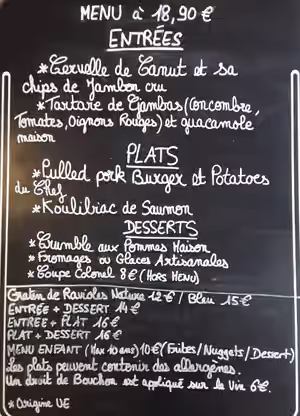 MENU à 18,90 €
ENTRÉES
*Cervelle de Canut et sa
chips de Jambon cru
*Tartare de Gambas (Concombre,
Tomates, Oignons Rouges) et guacamole
maison
PLATS
*Pulled pork Burger et Potatoes
du Chef
*Koulibiac de Saumon
DESSERTS
*Crumble aux Pommes Maison
*Fromages ou Glaces Artisanales
*Coupe Colonel 8€ (HORS MENU)
Gratin de Ravioles Nature 12€ / Bleu 15€
ENTRÉE + DESSERT 14€
ENTRÉE + PLAT 16€
PLAT + DESSERT 16€
MENU ENFANT (Max 10 ans) 10€ (Frites/Nuggets/Dessert)
Les plats peuvent contenir des allergènes.
Un droit de Bouchon est appliqué sur le Vin 6€.
* Origine UE